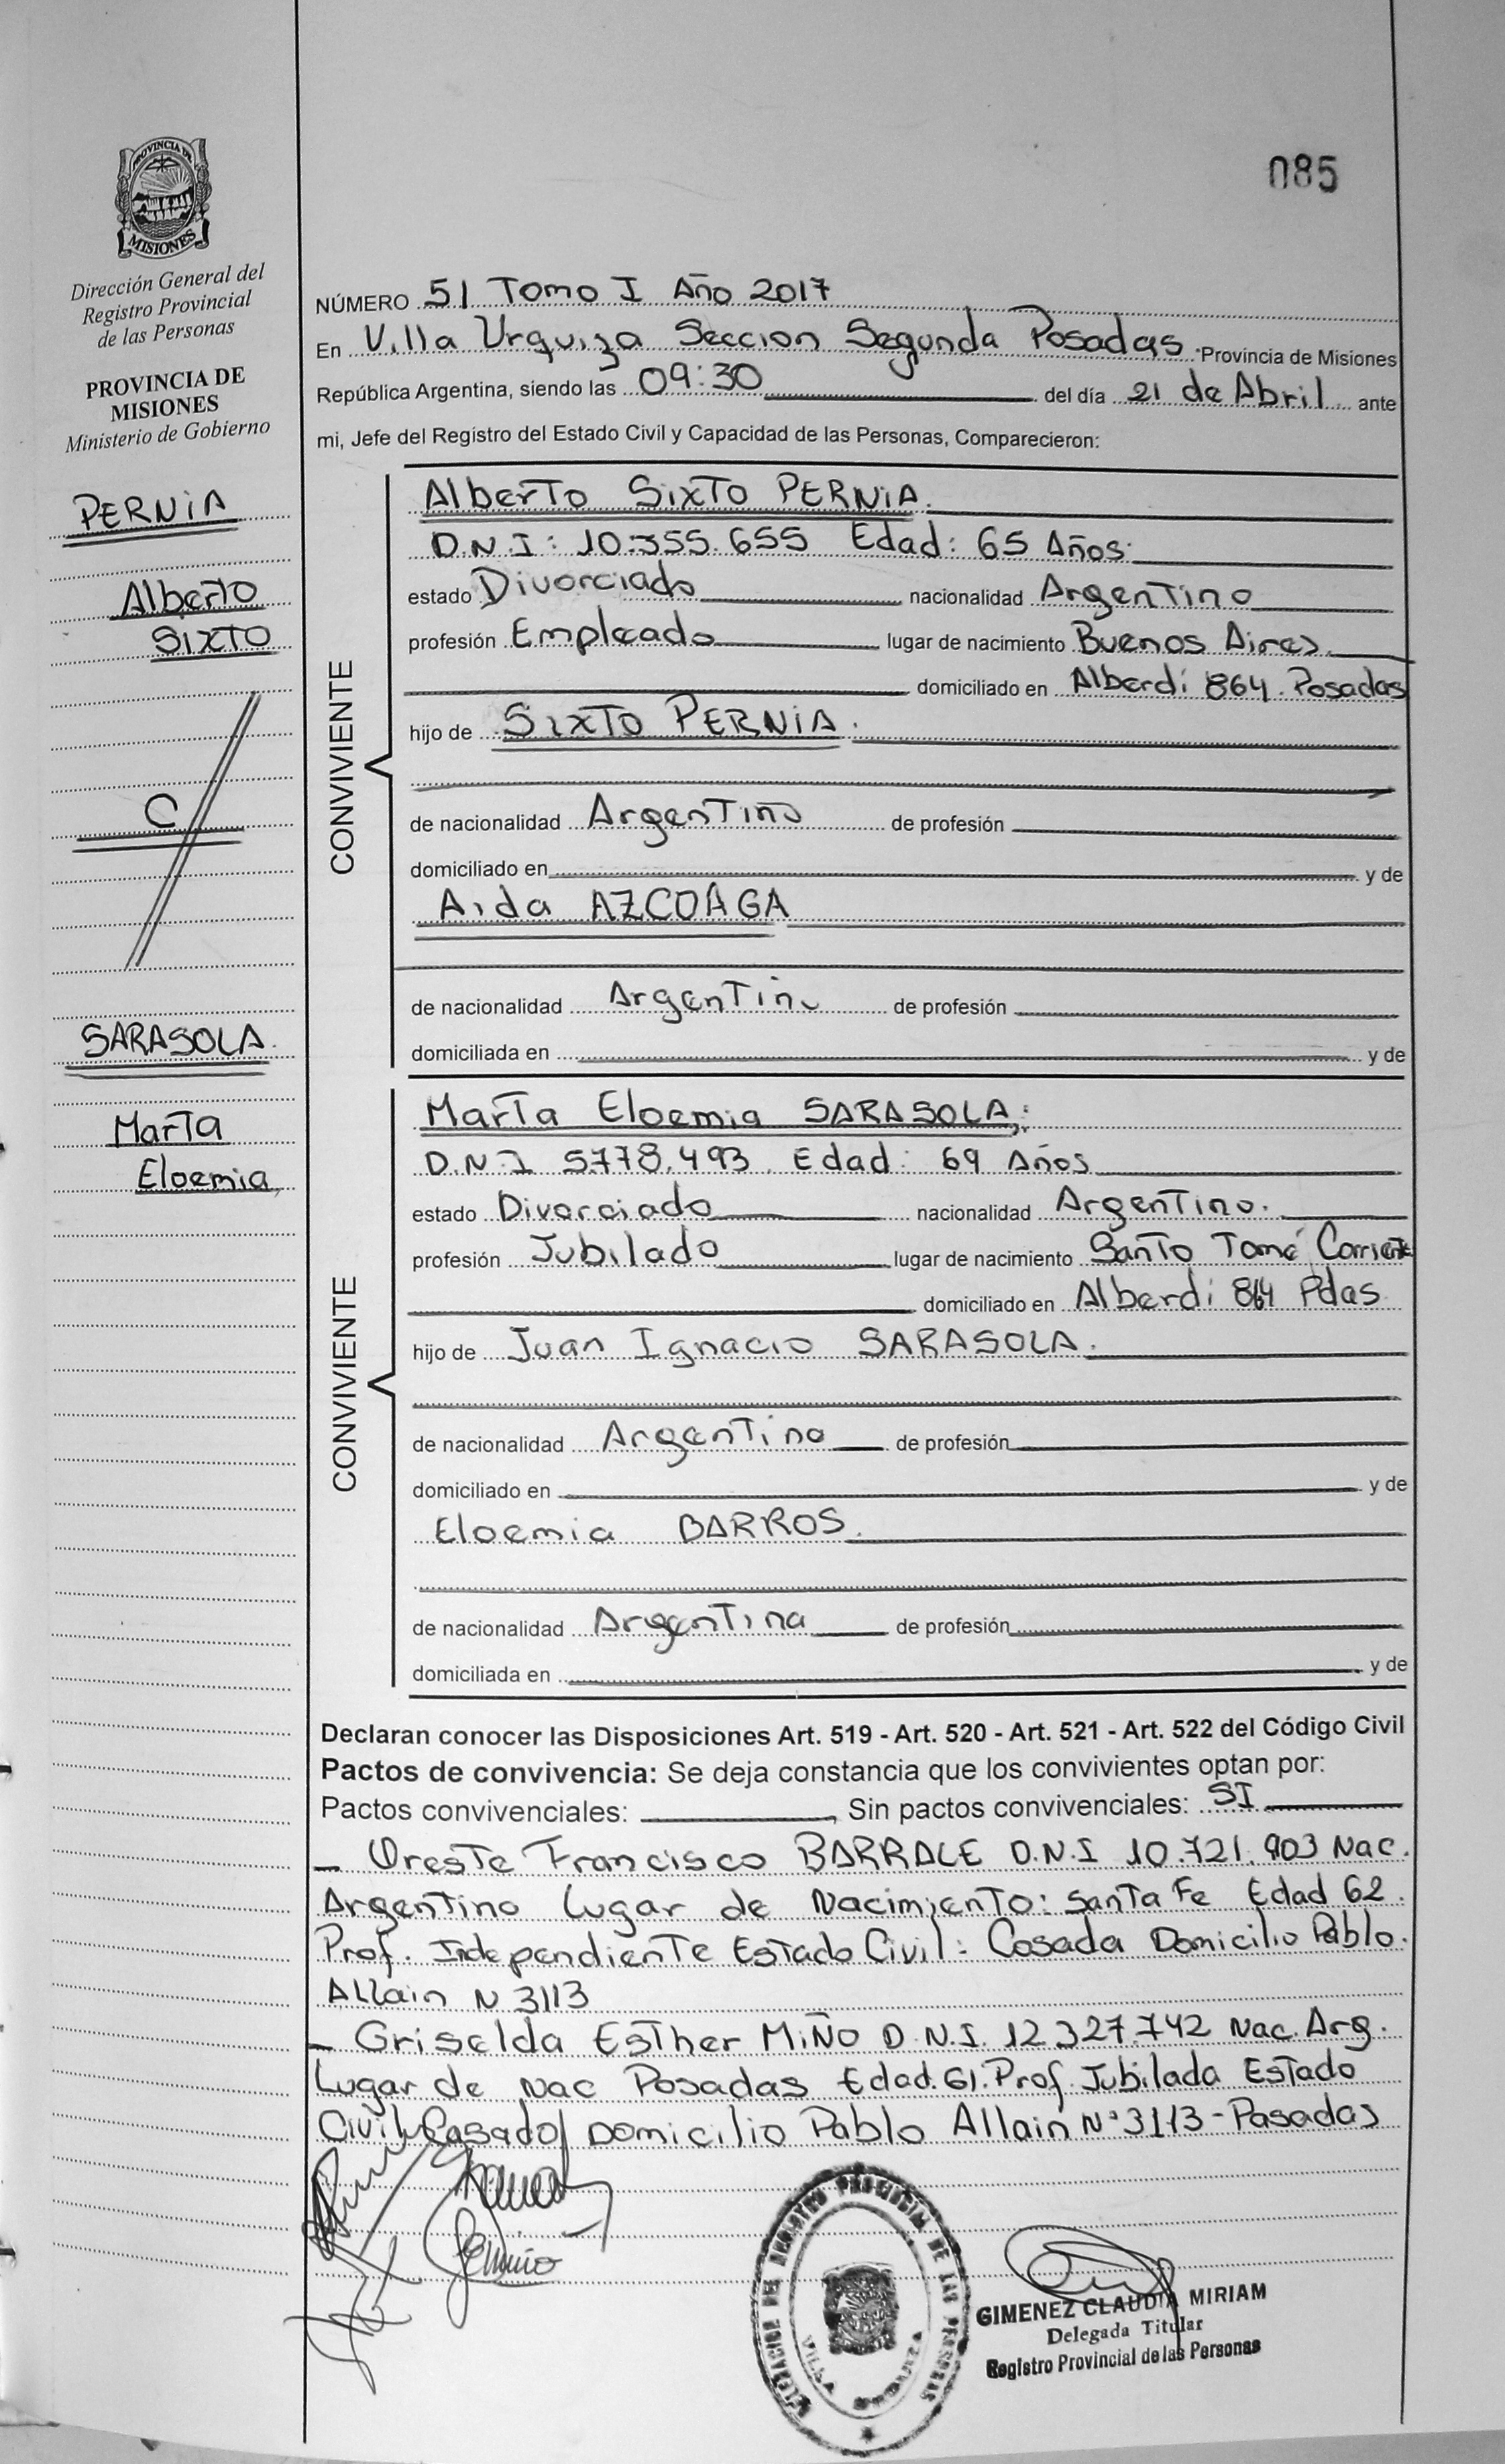 085
PROVINCIA DE
MISIONES
Dirección General del
Registro Provincial
de las Personas
PROVINCIA DE
MISIONES
Ministerio de Gobierno
PERNiA
Alberto
SIXTO
C
SARASOLA
Marta
Eloemia
NÚMERO 51 Tomo I Año 2017
En Villa Urquiza Seccion Segunda Posadas Provincia de Misiones
República Argentina, siendo las 09:30 del día 21 de Abril ante
mi, Jefe del Registro del Estado Civil y Capacidad de las Personas, Comparecieron:
CONVIVIENTE
Alberto Sixto PERNiA.
D.N.I: 10.355.655 Edad: 65 Años
estado Divorciado nacionalidad Argentino
profesión Empleado lugar de nacimiento Buenos Aires
domiciliado en Alberdi 864 Posadas
hijo de Sixto PERNiA.
de nacionalidad Argentino de profesión
domiciliado en y de
Aida AZCOAGA
de nacionalidad de profesión
domiciliada en y de
CONVIVIENTE
Marta Eloemia SARASOLA;
D.N.I 5778.493 Edad: 69 Años
estado Divorciado nacionalidad Argentino.
profesión Jubilado lugar de nacimiento Santo Tomé Corriente
domiciliado en Alberdi 864 Pdas
hijo de Juan Ignacio SARASOLA.
de nacionalidad Argentino de profesión
domiciliado en y de
Eloemia BARROS.
de nacionalidad Argentina de profesión
domiciliada en y de
Declaran conocer las Disposiciones Art. 519 - Art. 520 - Art. 521 - Art. 522 del Código Civil
Pactos de convivencia: Se deja constancia que los convivientes optan por:
Pactos convivenciales: , Sin pactos convivenciales: SI
– Oreste Francisco BARRALE D.N.I 10.721.903 Nac.
Argentino Lugar de Nacimiento: Santa Fe Edad 62.
Prof. Independiente Estado Civil: Casada Domicilio Pablo.
Allain N 3113
– Griselda Esther MiÑO D.N.I. 12.327.742 Nac. Arg.
Lugar de Nac Posadas Edad. 61. Prof. Jubilada Estado
Civil Casado/ Domicilio Pablo Allain Nº 3113 - Posadas
DELEGACION DEL REGISTRO PROVINCIAL DE LAS PERSONAS
VILLA URQUIZA
GIMENEZ CLAUDIA MIRIAM
Delegada Titular
Registro Provincial de las Personas